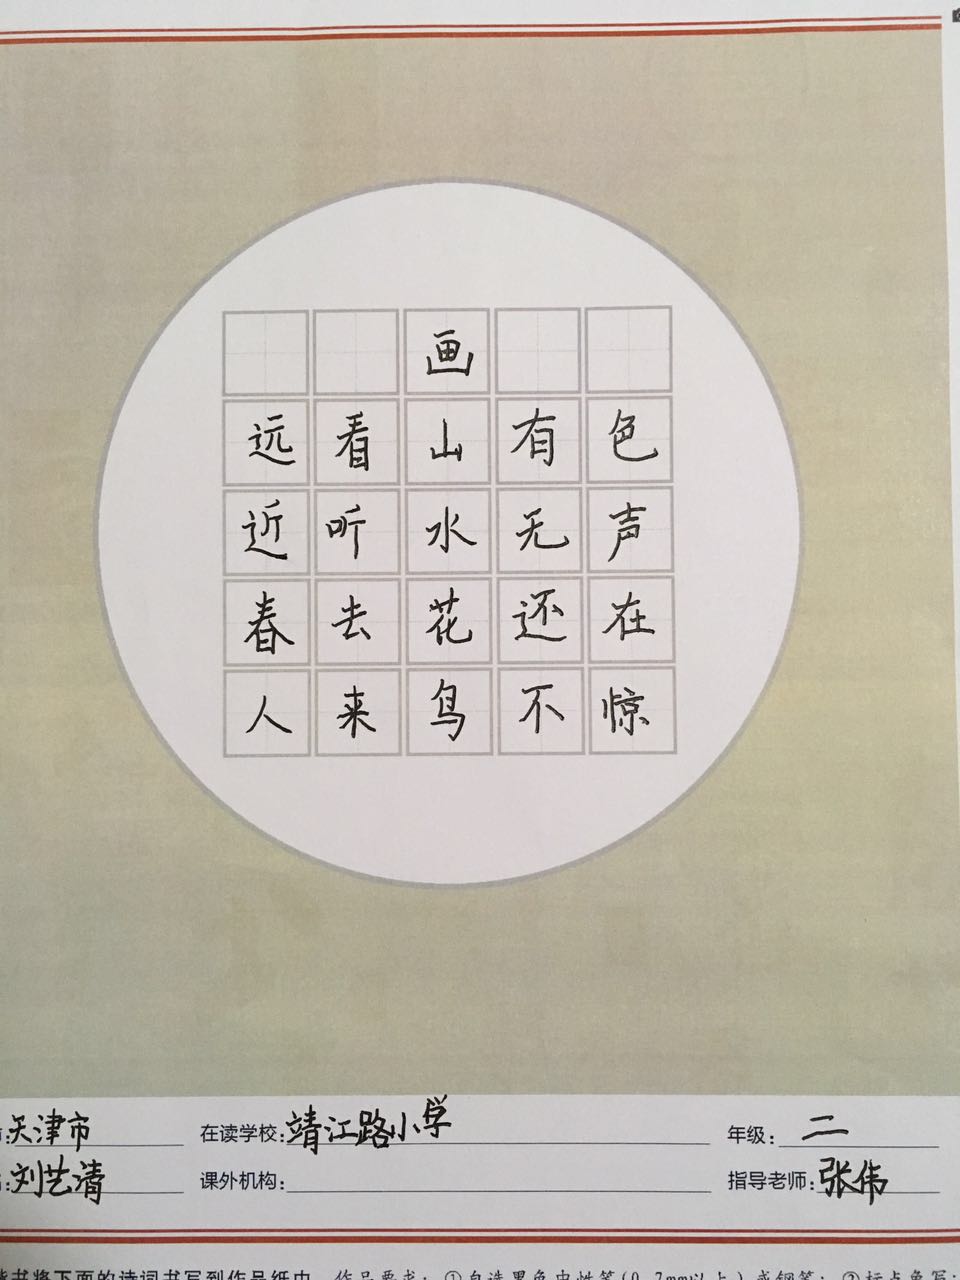 画
远看山有色
近听水无声
春去花还在
人来鸟不惊
天津市 在读学校:靖江路小学 年级:二
刘艺清 课外机构: 指导老师:张伟
书将下面的诗词书写到作品纸中 作品要求:①自选黑色中性笔(0.7mm以上)或钢笔;②标点免写;